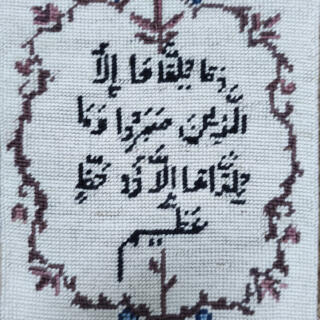 وما يلقاها إلا
الذين صبروا وما
يلقاها إلا ذو حظ
عظيم